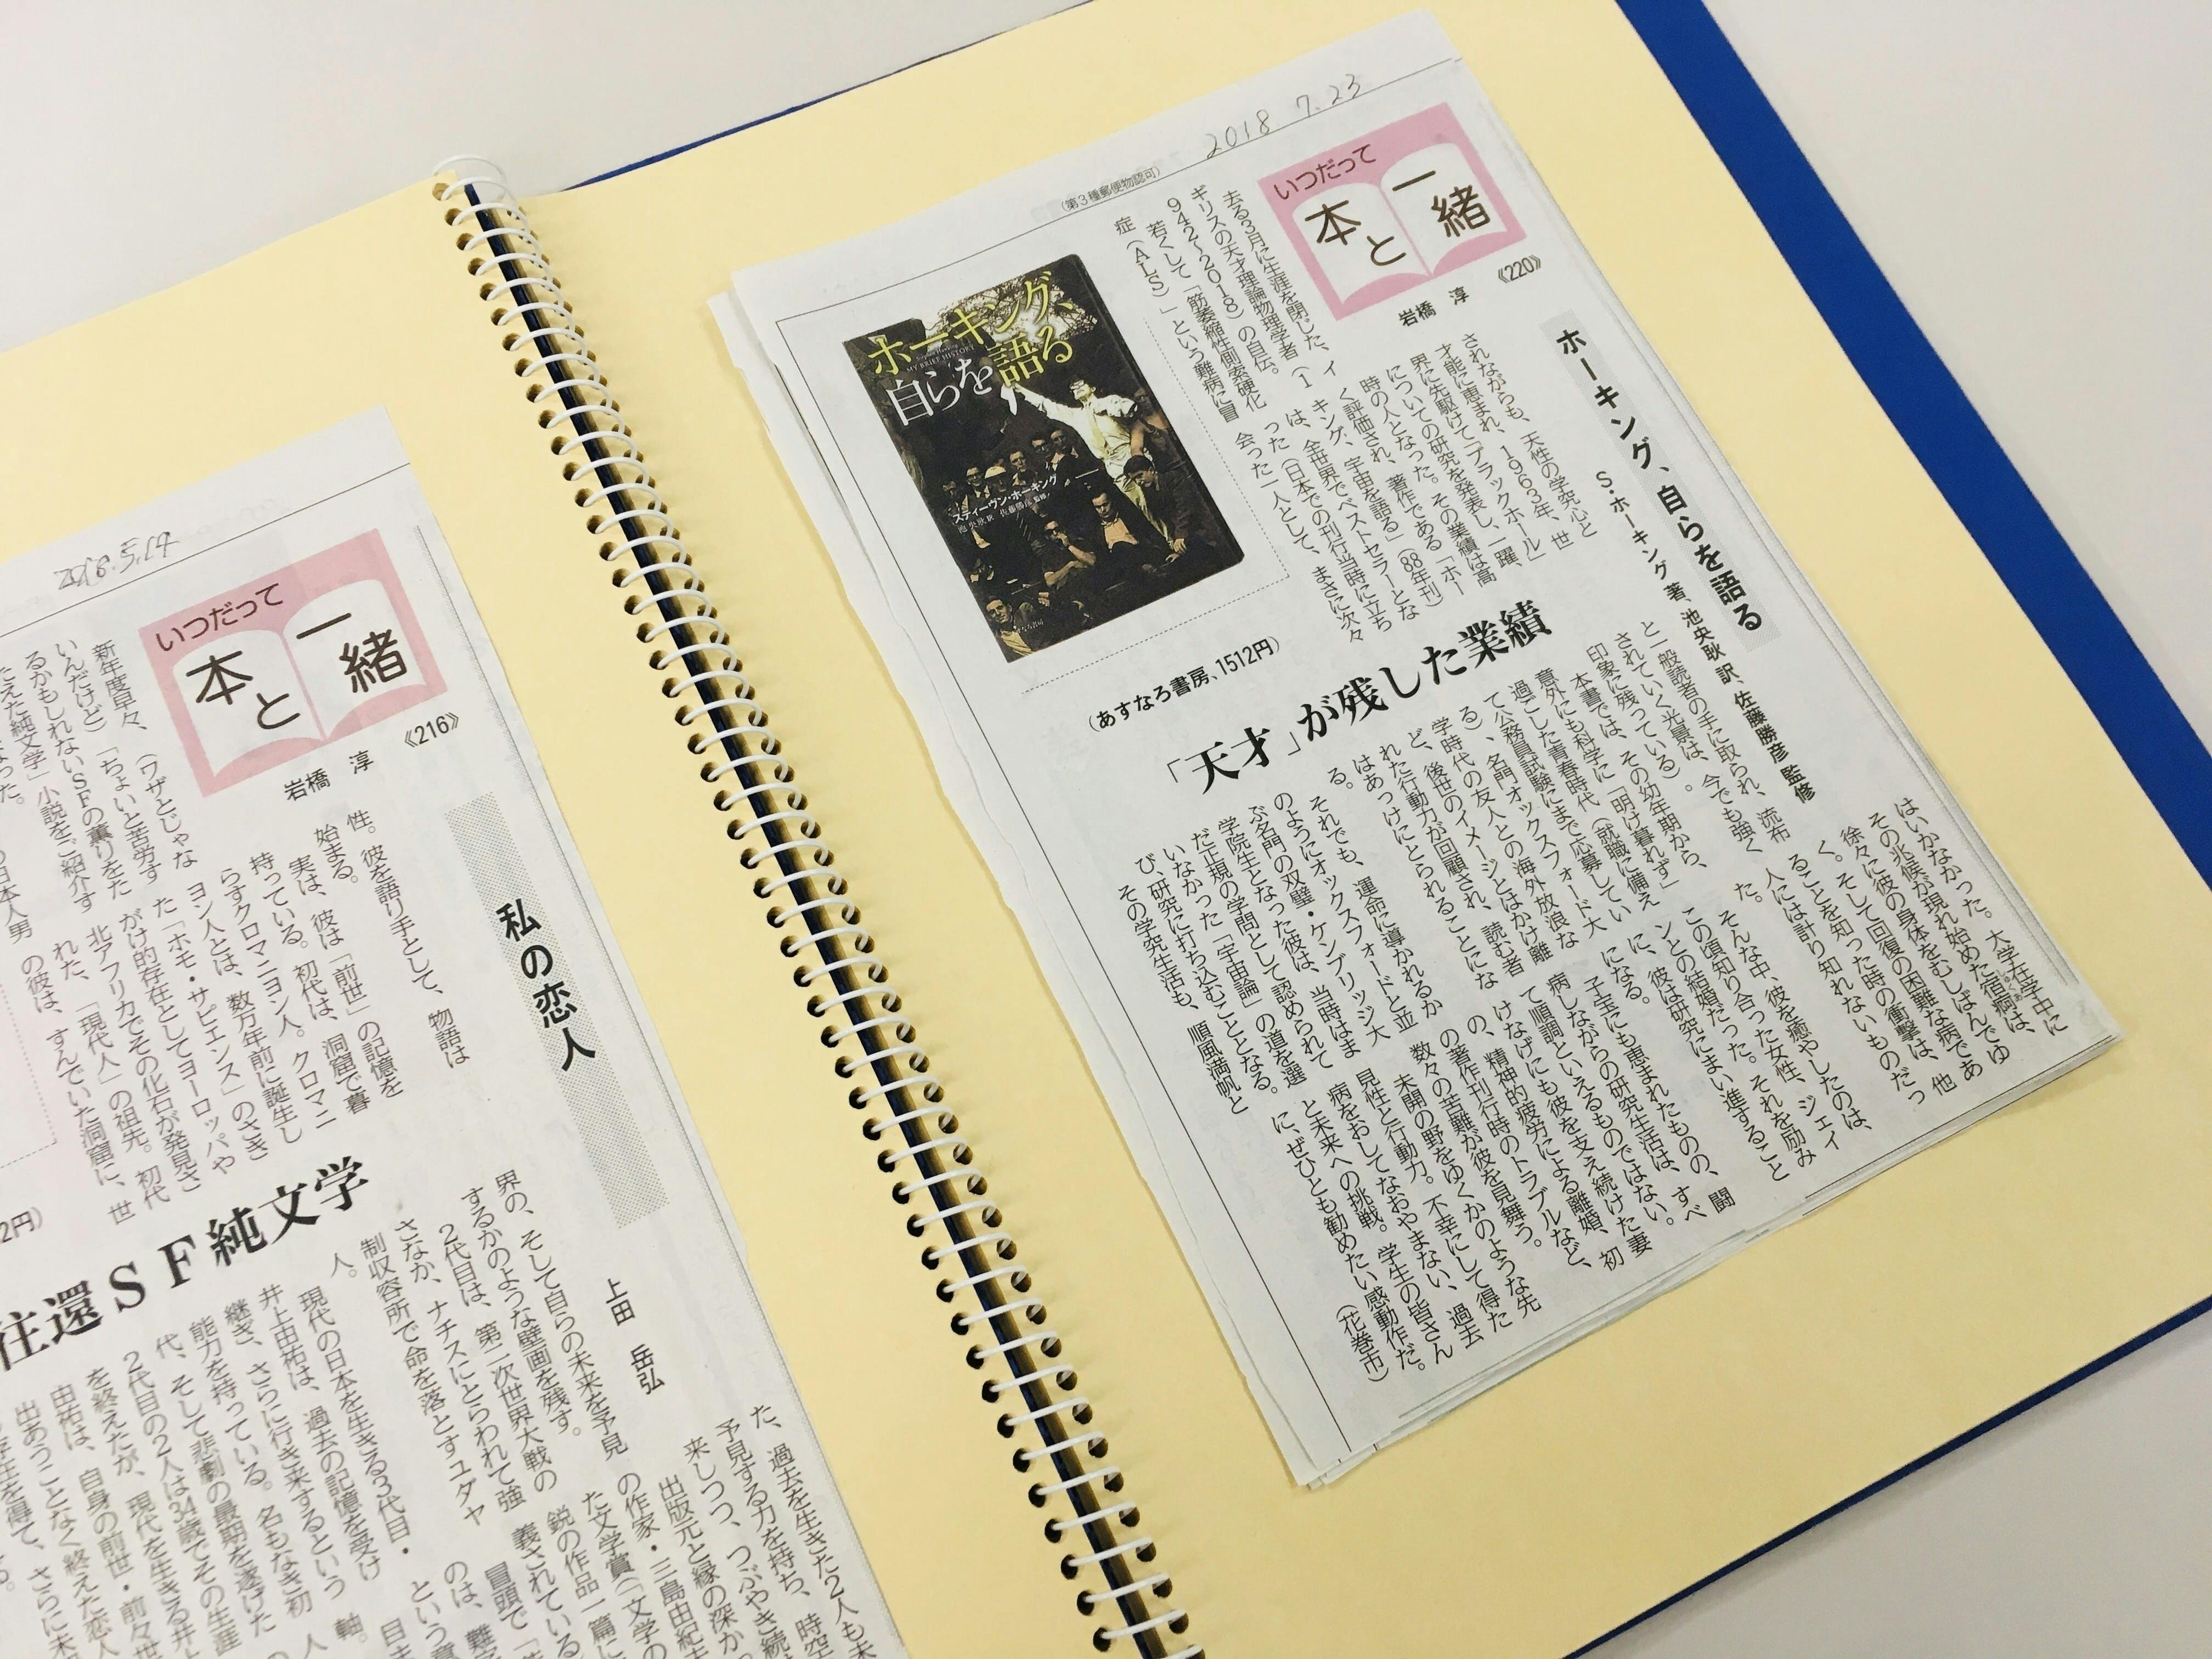 2018 7.23
(第3種郵便物認可)
いつだって
本と
一緒
《220》
岩橋 淳
ホーキング、自らを語る
S・ホーキング 著、池央耿 訳、佐藤勝彦 監修
去る3月に生涯を閉じた、イ
ギリスの天才理論物理学者(1
942〜2018)の自伝。
若くして「筋萎縮性側索硬化
症(ALS)」という難病に冒
されながらも、天性の学究心と
才能に恵まれ、1963年、世
界に先駆けて「ブラックホール」
についての研究を発表し、一躍、
時の人となった。その業績は高
く評価され、著作である「ホー
キング、宇宙を語る」(88年刊)
は、全世界でベストセラーとな
った(日本での刊行当時に立ち
会った一人として、まさに次々
と一般読者の手に取られ、流布
されていく光景は、今でも強く
印象に残っている)。
本書では、その幼年期から、
意外にも科学に「明け暮れず」
過ごした青春時代(就職に備え
て公務員試験にまで応募してい
る)、名門オックスフォード大
学時代の友人との海外放浪な
ど、後世のイメージとはかけ離
れた行動力が回顧され、読む者
はあっけにとられることにな
る。
それでも、運命に導かれるか
のようにオックスフォードと並
ぶ名門の双璧・ケンブリッジ大
学院生となった彼は、当時はま
だ正規の学問として認められて
いなかった「宇宙論」の道を選
び、研究に打ち込むこととなる。
その学究生活も、順風満帆と
はいかなかった。大学在学中に
その兆候が現れ始めた宿痾は、
徐々に彼の身体をむしばんでゆ
く。そして回復の困難な病であ
ることを知った時の衝撃は、他
人には計り知れないものだっ
た。
そんな中、彼を癒やしたのは、
この頃知り合った女性、ジェイ
ンとの結婚だった。それを励み
に、彼は研究にまい進すること
になる。
子宝にも恵まれたものの、闘
病しながらの研究生活は、すべ
て順調といえるものではない。
けなげにも彼を支え続けた妻
の、精神的疲労による離婚、初
の著作刊行時のトラブルなど、
数々の苦難が彼を見舞う。
未開の野をゆくかのような先
見性と行動力。不幸にして得た
病をおしてなおやまない、過去
と未来への挑戦。学生の皆さん
に、ぜひとも勧めたい感動作だ。
(花巻市)
「天才」が残した業績
ホーキング、
MY BRIEF HISTORY
自らを語る
スティーヴン・ホーキング
池央耿 訳 佐藤勝彦 監修
(あすなろ書房、1512円)
2018.5.14
いつだって
本と
一緒
《216》
岩橋 淳
私の恋人
上田 岳弘
新年度早々、(ワザとじゃな
いんだけど)「ちょいと苦労す
るかもしれないSFの薫りをた
たえた純文学」小説をご紹介す
日本人男
性。彼を語り手として、物語は
始まる。
実は、彼は「前世」の記憶を
持っている。初代は、洞窟で暮
らすクロマニョン人。クロマニ
ヨン人とは、数万年前に誕生し
た「ホモ・サピエンス」のさき
がけ的存在としてヨーロッパや
北アフリカでその化石が発見さ
れた、「現代人」の祖先。初代
の彼は、すんでいた洞窟に、世
界の、そして自らの未来を予見
するかのような壁画を残す。
2代目は、第二次世界大戦の
さなか、ナチスにとらわれて強
制収容所で命を落とすユダヤ
人。
現代の日本を生きる3代目・
井上由祐は、過去の記憶を受け
継ぎ、さらに行き来するという
能力を持っている。名もなき初
代、そして悲劇の最期を遂げた
2代目の2人は34歳でその生涯
を終えたが、現代を生きる井上
由祐は、自身の前世・前々世
出あうことなく終えた恋人
た、過去を生きた2人も未
予見する力を持ち、時空
来しつつ、つぶやき続
出版元と縁の深か
の作家・三島由紀夫
た文学賞(「文学の
鋭の作品一篇に
義されている
冒頭で
往還SF純文学
2円)